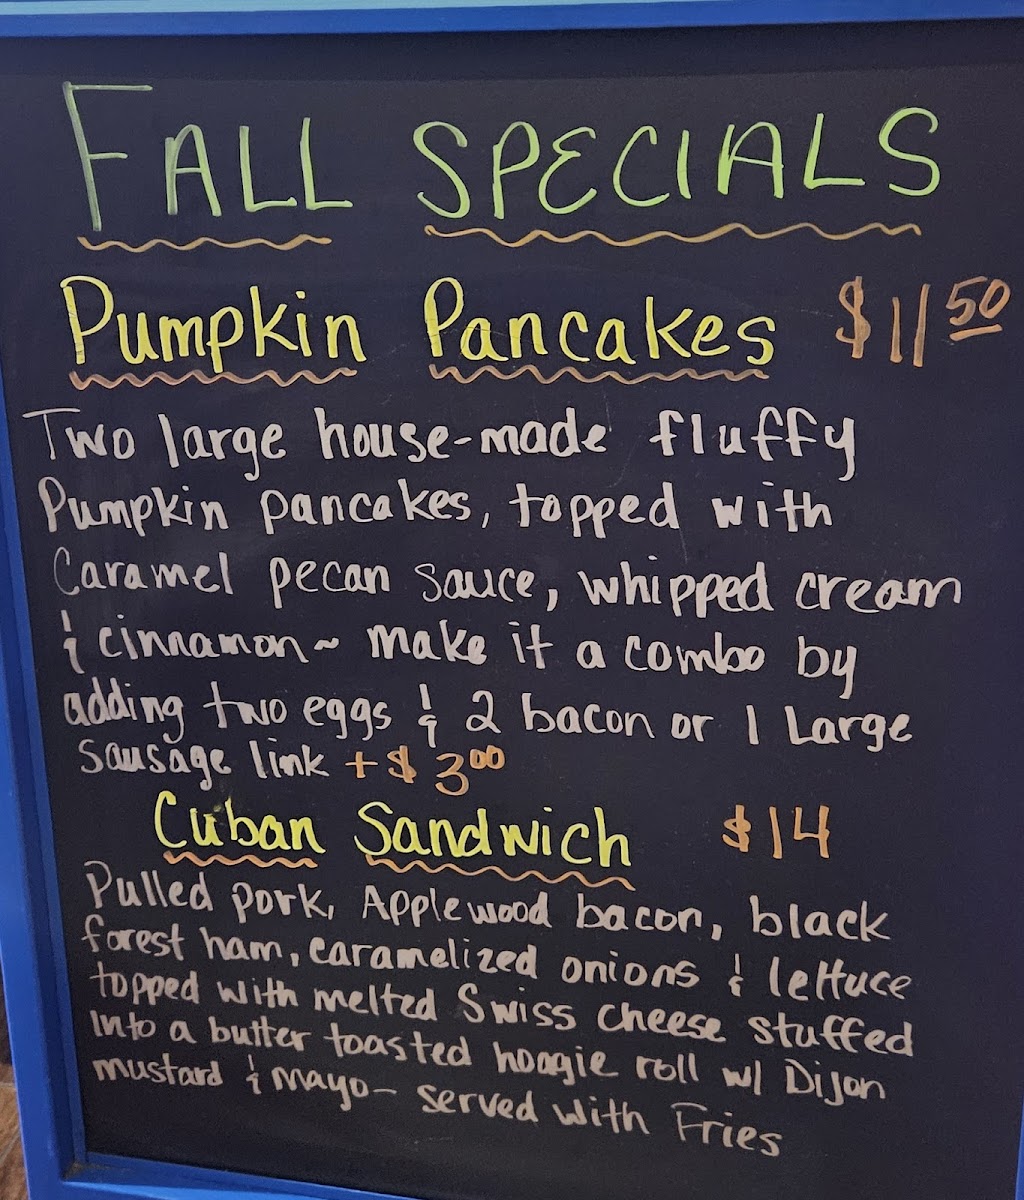 FALL SPECIALS
Pumpkin Pancakes $11 50
Two large house-made fluffy
Pumpkin pancakes, topped with
Caramel pecan sauce, whipped cream
& cinnamon ~ make it a combo by
adding two eggs & 2 bacon or 1 Large
sausage link + $ 3 00
Cuban Sandwich $14
Pulled pork, Applewood bacon, black
forest ham, caramelized onions & lettuce
topped with melted Swiss cheese stuffed
Into a butter toasted hoagie roll w/ Dijon
mustard & mayo - served with Fries